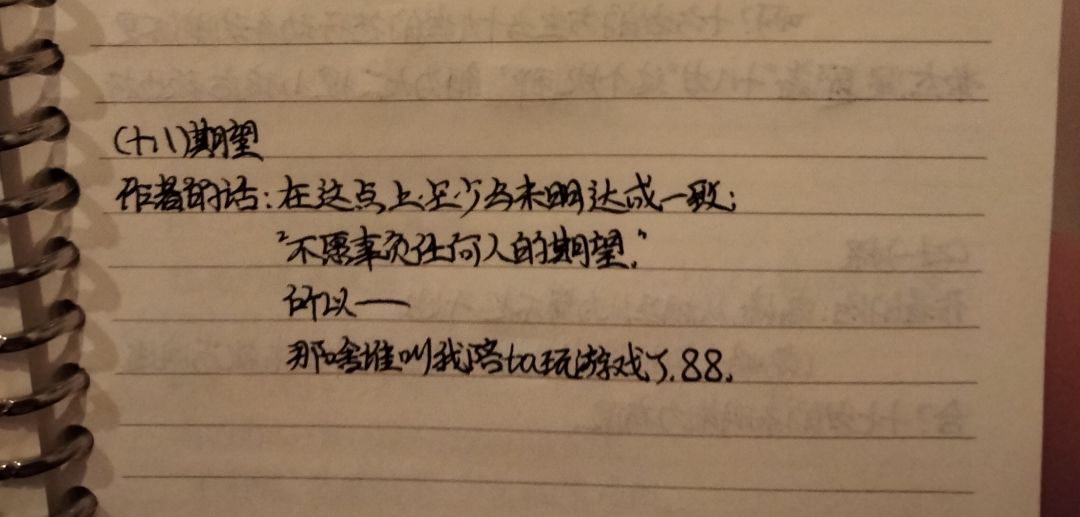 (十八)期望
作者的话:在这点上至少与未明达成一致:
"不愿辜负任何人的期望."
所以——
那啥谁叫我陪ta玩游戏了.88.